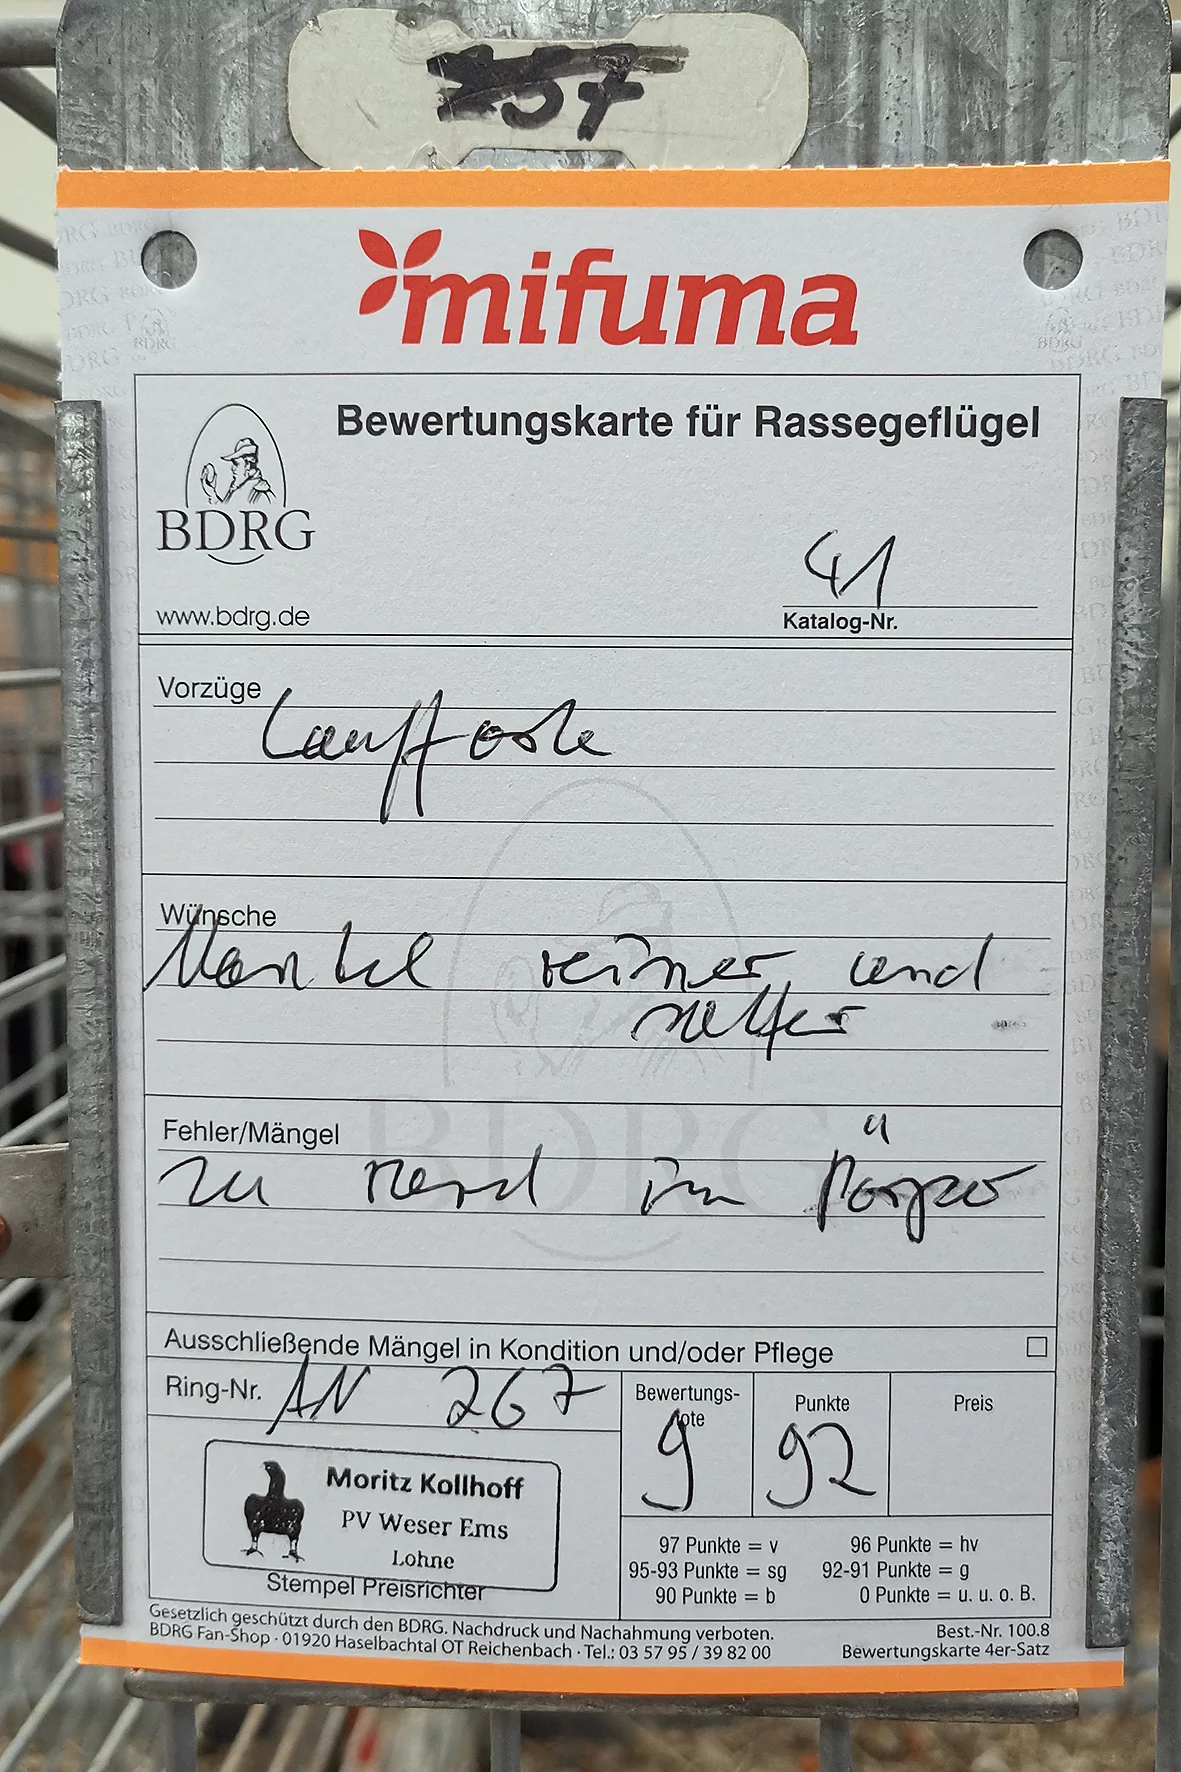 357
mifuma
Bewertungskarte für Rassegeflügel
BDRG
www.bdrg.de
41
Katalog-Nr.
Vorzüge
Lauffarbe
Wünsche
Mantel reiner und
satter
Fehler/Mängel
zu rund im Körper
Ausschließende Mängel in Kondition und/oder Pflege
Ring-Nr. AN 267
Bewertungs-
note
9
Punkte
92
Preis
Moritz Kollhoff
PV Weser Ems
Lohne
Stempel Preisrichter
97 Punkte = v 96 Punkte = hv
95-93 Punkte = sg 92-91 Punkte = g
90 Punkte = b 0 Punkte = u. u. o. B.
Gesetzlich geschützt durch den BDRG. Nachdruck und Nachahmung verboten.
BDRG Fan-Shop · 01920 Haselbachtal OT Reichenbach · Tel.: 03 57 95 / 39 82 00
Best.-Nr. 100.8
Bewertungskarte 4er-Satz